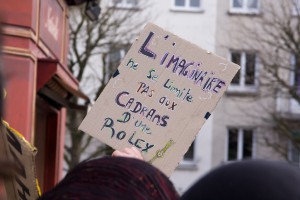 L'IMAGINAIRE
ne se limite
PAS AUX
CADRANS
D'UNE
ROLEX